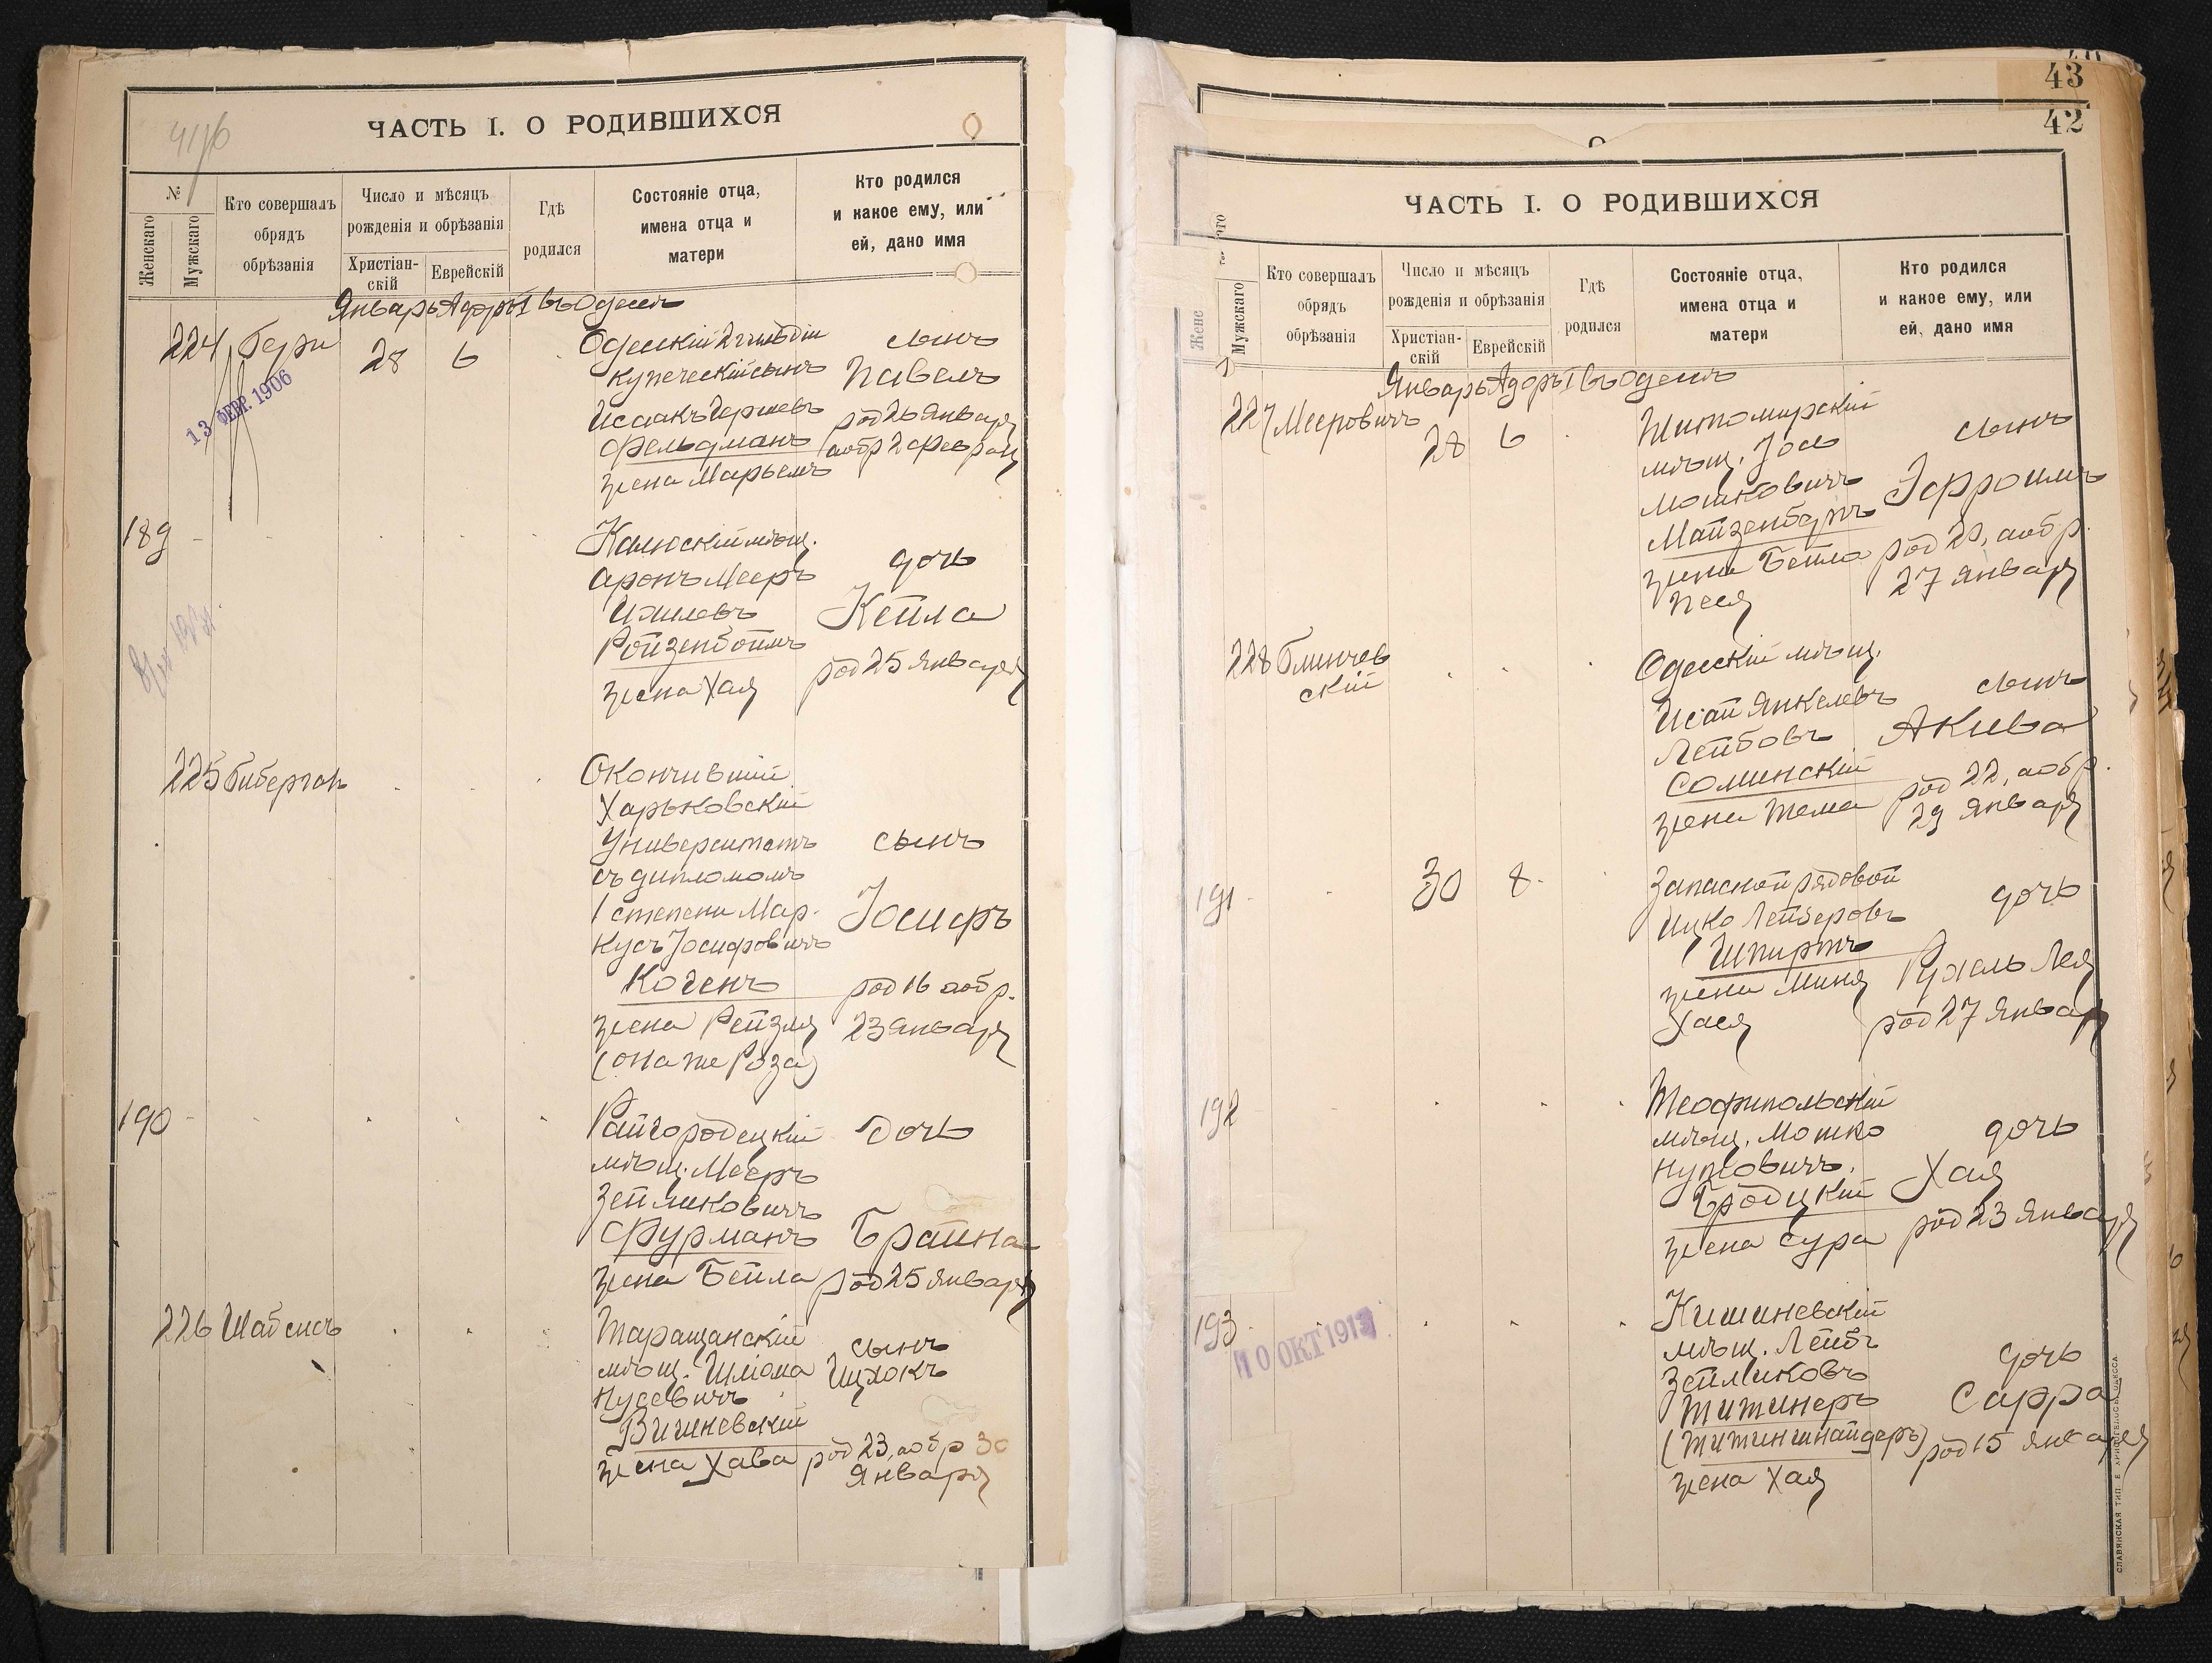 4116
ЧАСТЬ I. О РОДИВШИХСЯ
№
Женскаго
Мужскаго
Кто совершалъ
обрядъ
обрѣзанія
Число и мѣсяцъ
рожденія и обрѣзанія
Христіан-
скій
Еврейскій
Гдѣ
родился
Состояніе отца,
имена отца и
матери
Кто родился
и какое ему, или
ей, дано имя
Январь Адаръ I въ Одессѣ
224
28
6
Одесскій 2 гильдіи
купеческій сынъ
Исаакъ Гершевъ
Фельдманъ
жена Марьемъ
сынъ
Павелъ
род 26 Января
а обр 2 Февраля
13 ФЕВР. 1906
189
Калюскій мѣщ.
Аронъ Мееръ
Ройзенбоймъ
жена Хая
дочь
Кейла
род 25 Января
225
Оконч﻿ившій
Харьковскій
Университетъ
съ дипломомъ
1 степени Мар-
кусъ Іосифовичъ
Когенъ
жена Рейзля
(она же Роза)
сынъ
Іосифъ
род 16 а обр.
23 Января
190
Райгородецкій
мѣщ. Мееръ
Зейликовичъ
Фурманъ
жена Бейла
Дочь
Брайна
род 25 Января
226 Шабсисъ
Таращанскій
мѣщ. Шліома
Нусевичъ
Вишневскій
жена Хава
сынъ
Ицхокъ
род 23, а обр 30
Января
43
42
ЧАСТЬ I. О РОДИВШИХСЯ
Жене
Мужскаго
Кто совершалъ
обрядъ
обрѣзанія
Число и мѣсяцъ
рожденія и обрѣзанія
Христіан-
скій
Еврейскій
Гдѣ
родился
Состояніе отца,
имена отца и
матери
Кто родился
и какое ему, или
ей, дано имя
Январь Адаръ I въ Одессѣ
227 Мееровичъ
28
6
Житомирскій
мѣщ. Іось
Мошковичъ
Майзенбергъ
жена Бейла
Песя
сынъ
Эфроимъ
род 20, а обр.
27 Января
228 Блинчев
скій
Одесскій мѣщ.
Исай Янкелевъ
Лейбовъ
Соминскій
жена Тема
сынъ
Акива
род 22, а обр.
29 Января
191
30
8
Запасной рядовой
Ицко Лейзеровъ
Шпиртъ
жена Миня
Хася
дочь
Рухель Лея
род 27 Января
192
Теофипольскій
мѣщ. Мошко
Нутовичъ
Бродцкій
жена Сура
дочь
Хая
род 23 Января
193
10 ОКТ 1913
Кишиневскій
мѣщ. Лейбъ
Зейликовъ
Житинеръ
(Житиншнайдеръ)
жена Хая
дочь
Сарра
род 15 Января